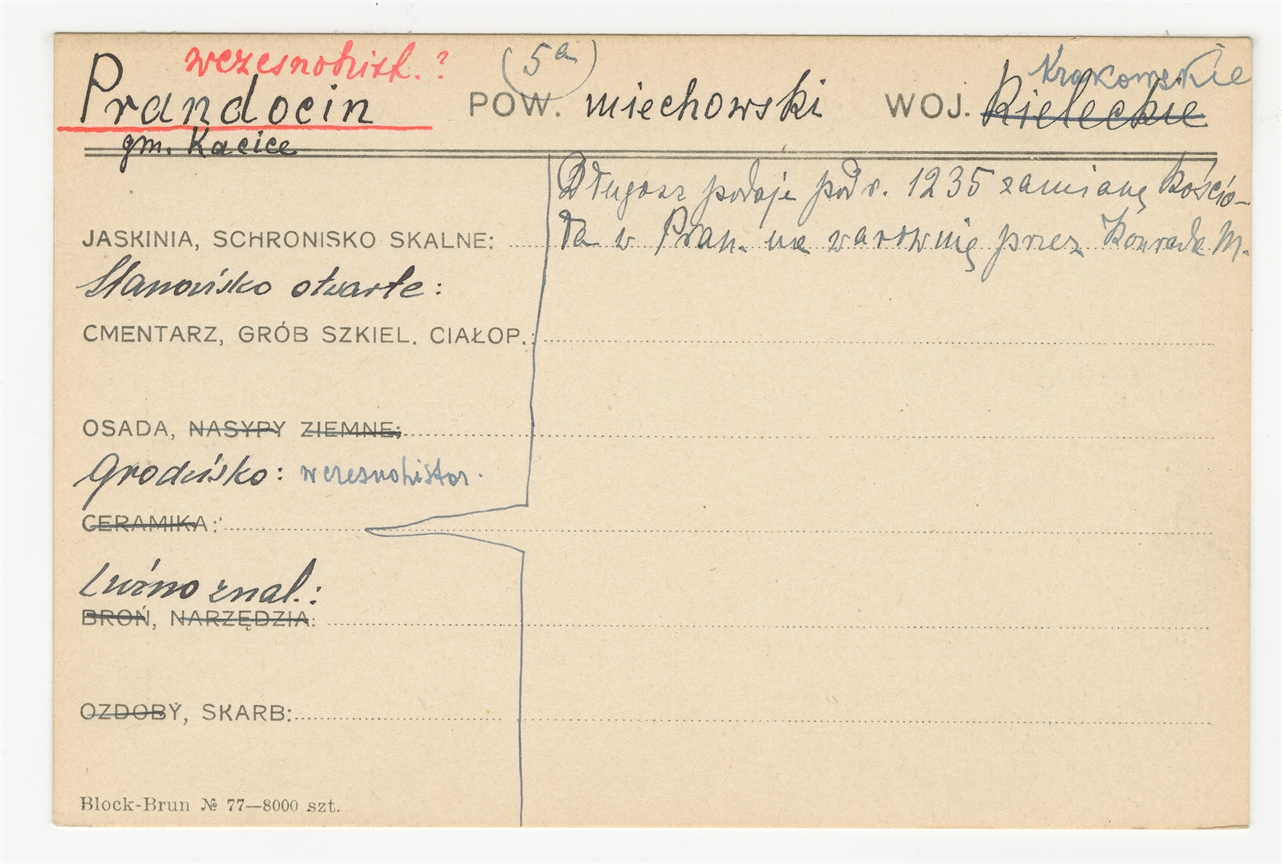 wczesnohist. ? (5a)
Prandocin POW. miechowski WOJ. Kieleckie Krakowskie
gm. Kacice
Długosz podaje pod r. 1235 zamianę kościo-
JASKINIA, SCHRONISKO SKALNE: ła w Pran. na warownię przez Konrada M.
Stanowisko otwarte:
CMENTARZ, GRÓB SZKIEL. CIAŁOP.:
OSADA, NASYPY ZIEMNE:
Grodzisko: wczesnohistor.
CERAMIKA:
Luźno znal.:
BROŃ, NARZĘDZIA:
OZDOBY, SKARB:
Block-Brun № 77—8000 szt.